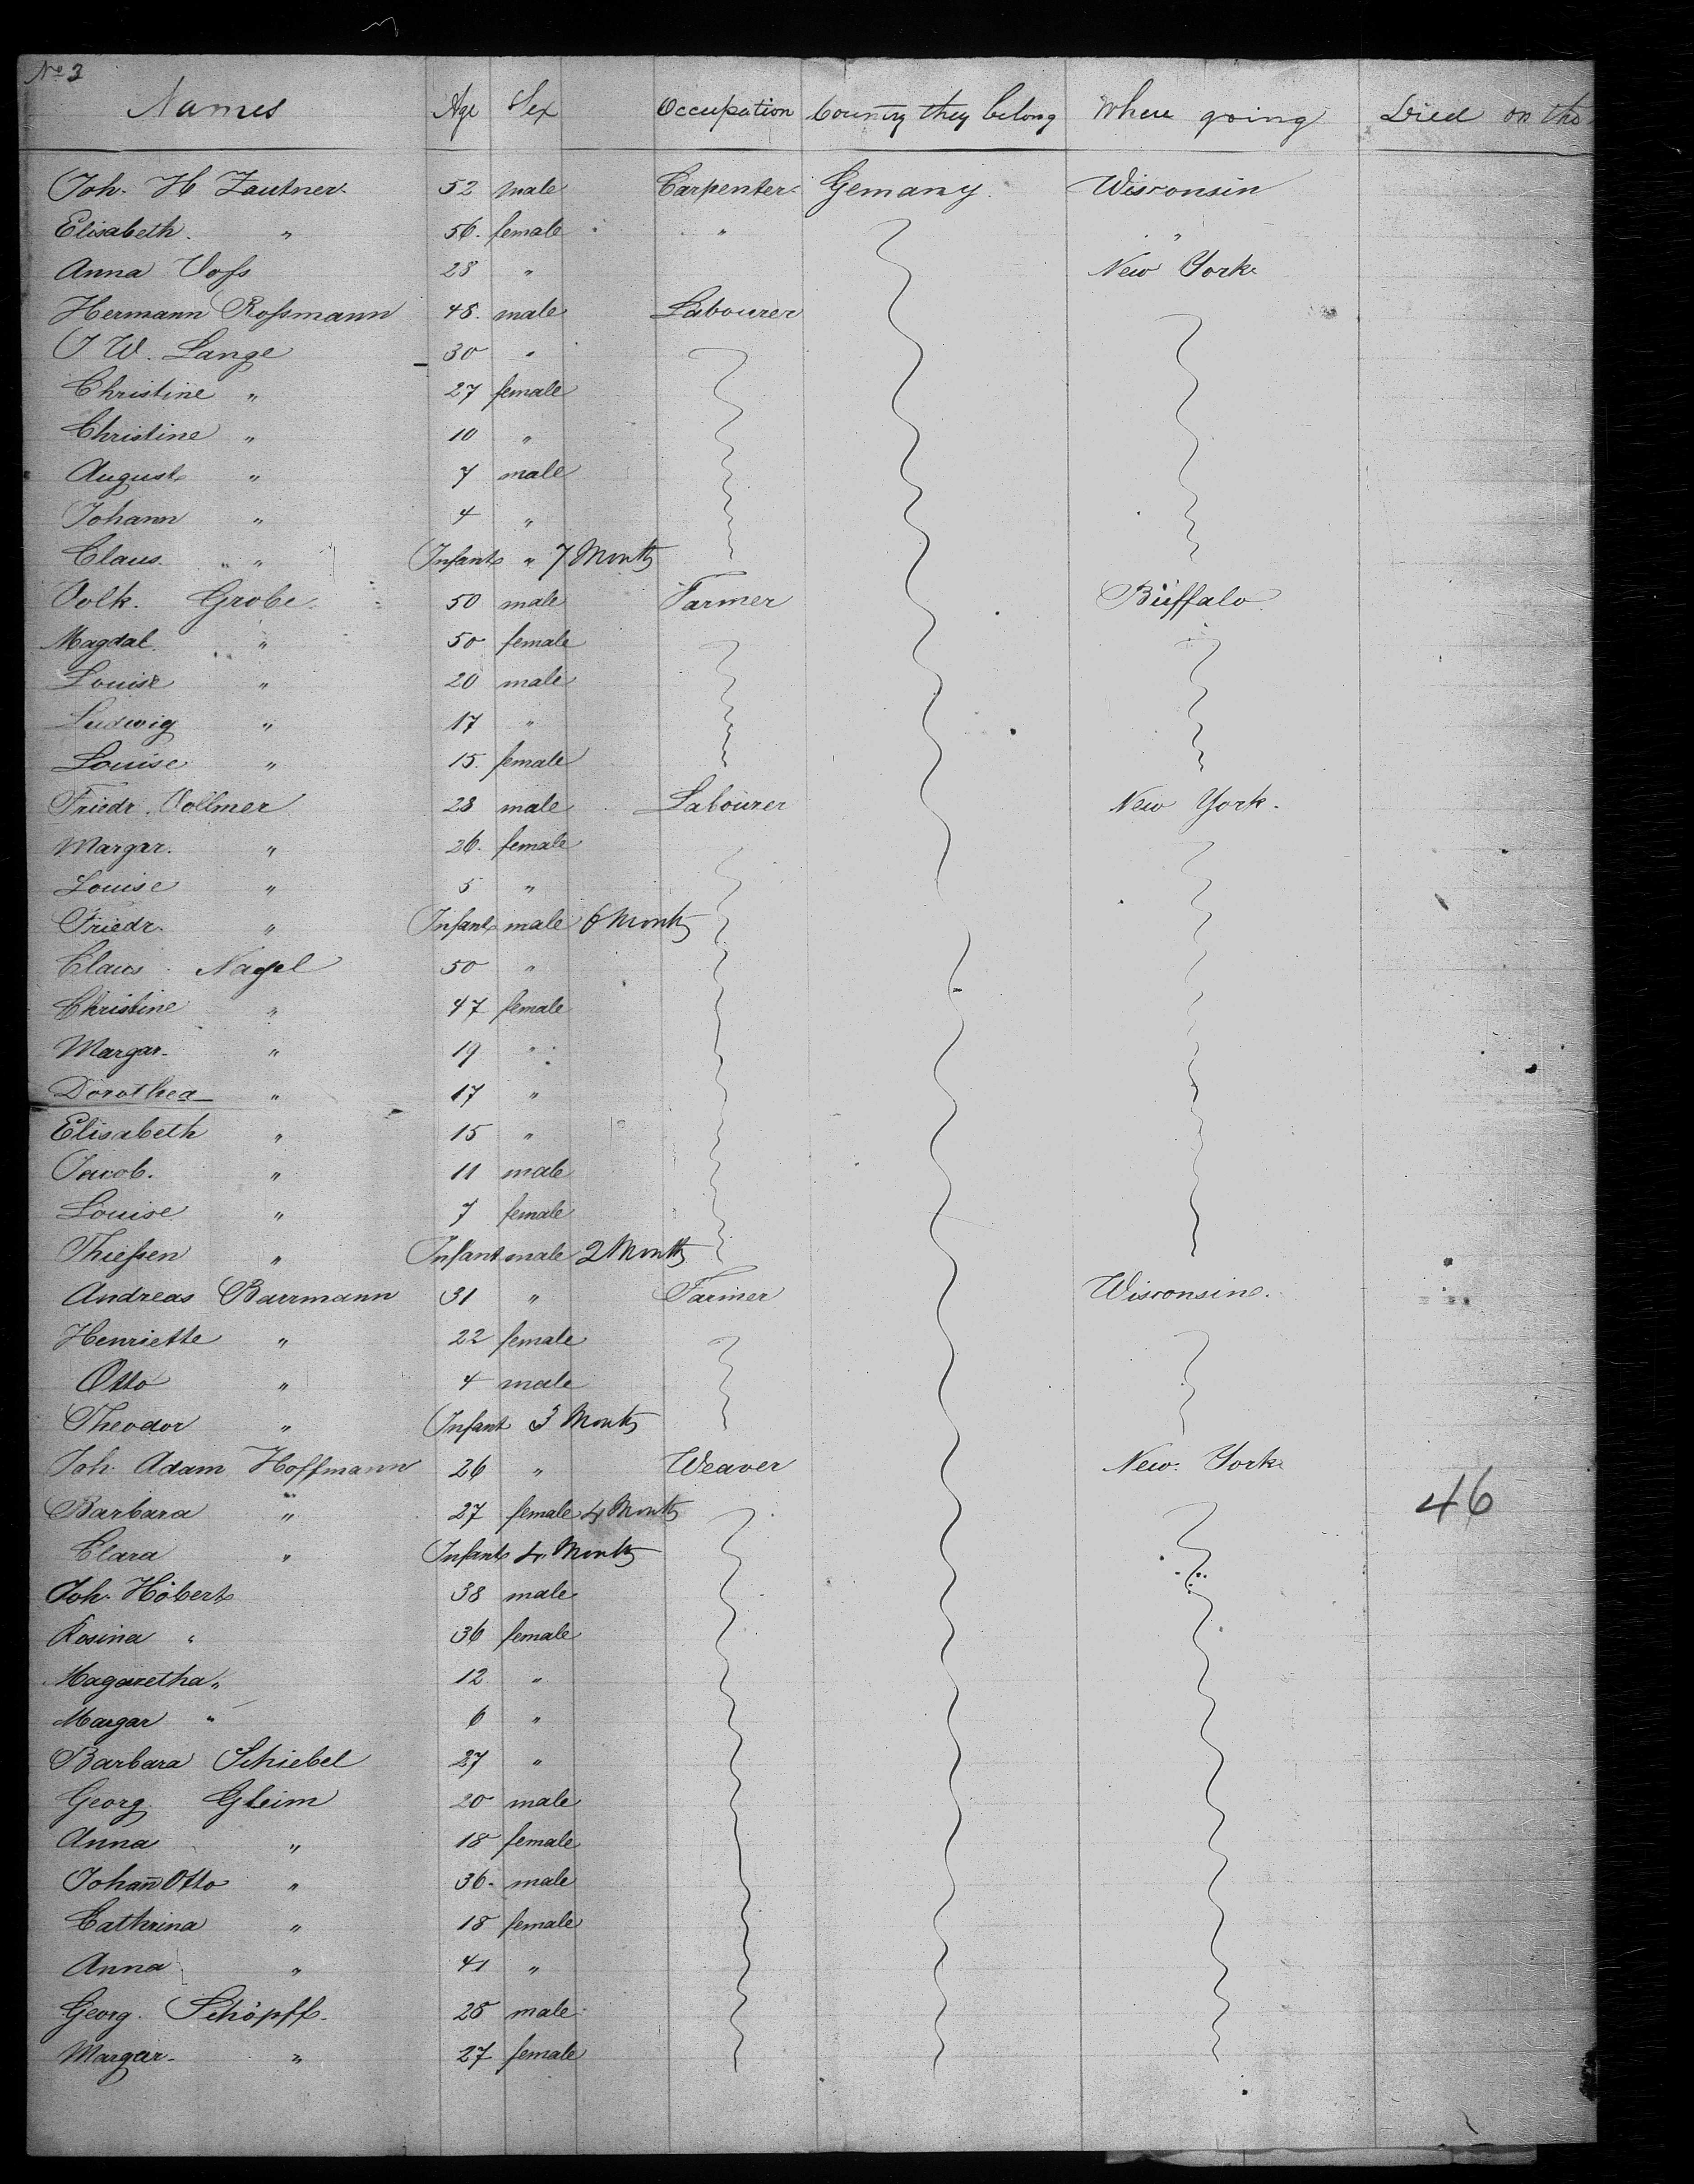 No 3
Names Age Sex Occupation Country they belong Where going Died on the
Joh. H Zautner 52 male Carpenter Gemany. Wisconsin
Elisabeth. " 56. female " "
Anna Voſs 28 " New York
Hermann Roſsmann 48. male Labourer
J W. Lange 30 "
Christine " 27 female
Christine " 10 "
August " 7 male
Johann " 4 "
Claus. " Infant " 7 Month
Volk. Grobe. 50 male Farmer Buffalo.
Magdal. " 50 female
Louise " 20 male
Ludwig " 17 "
Louise " 15. female
Friedr. Vollmer 28 male Labourer New York.
Margar. " 26. female
Louise " 5 "
Friedr. " Infant male 6 Month
Claus Nagel 50 "
Christine " 47 female
Margar. " 19 "
Dorothea " 17 "
Elisabeth " 15 "
Jacob. " 11 male
Louise " 7 female
Thieſsen " Infant male 2 Month
Andreas Barrmann 31 " Farmer Wisconsin.
Henriette " 22 female
Otto " 4 male
Theodor " Infant 3 Month
Joh. Adam Hoffmann 26 " Weaver New York
Barbara " 27 female 4 Month 46
Clara " Infant 4 Month
Joh. Höbert 38 male
Rosina " 36 female
Magaretha " 12 "
Margar " 6 "
Barbara Schiebel 27 "
Georg. Gleim 20 male
Anna " 18 female
Johan̄ Otto " 36. male
Cathrina " 18 female
Anna " 41 "
Georg. Schöpff. 28 male
Margar. " 27 female